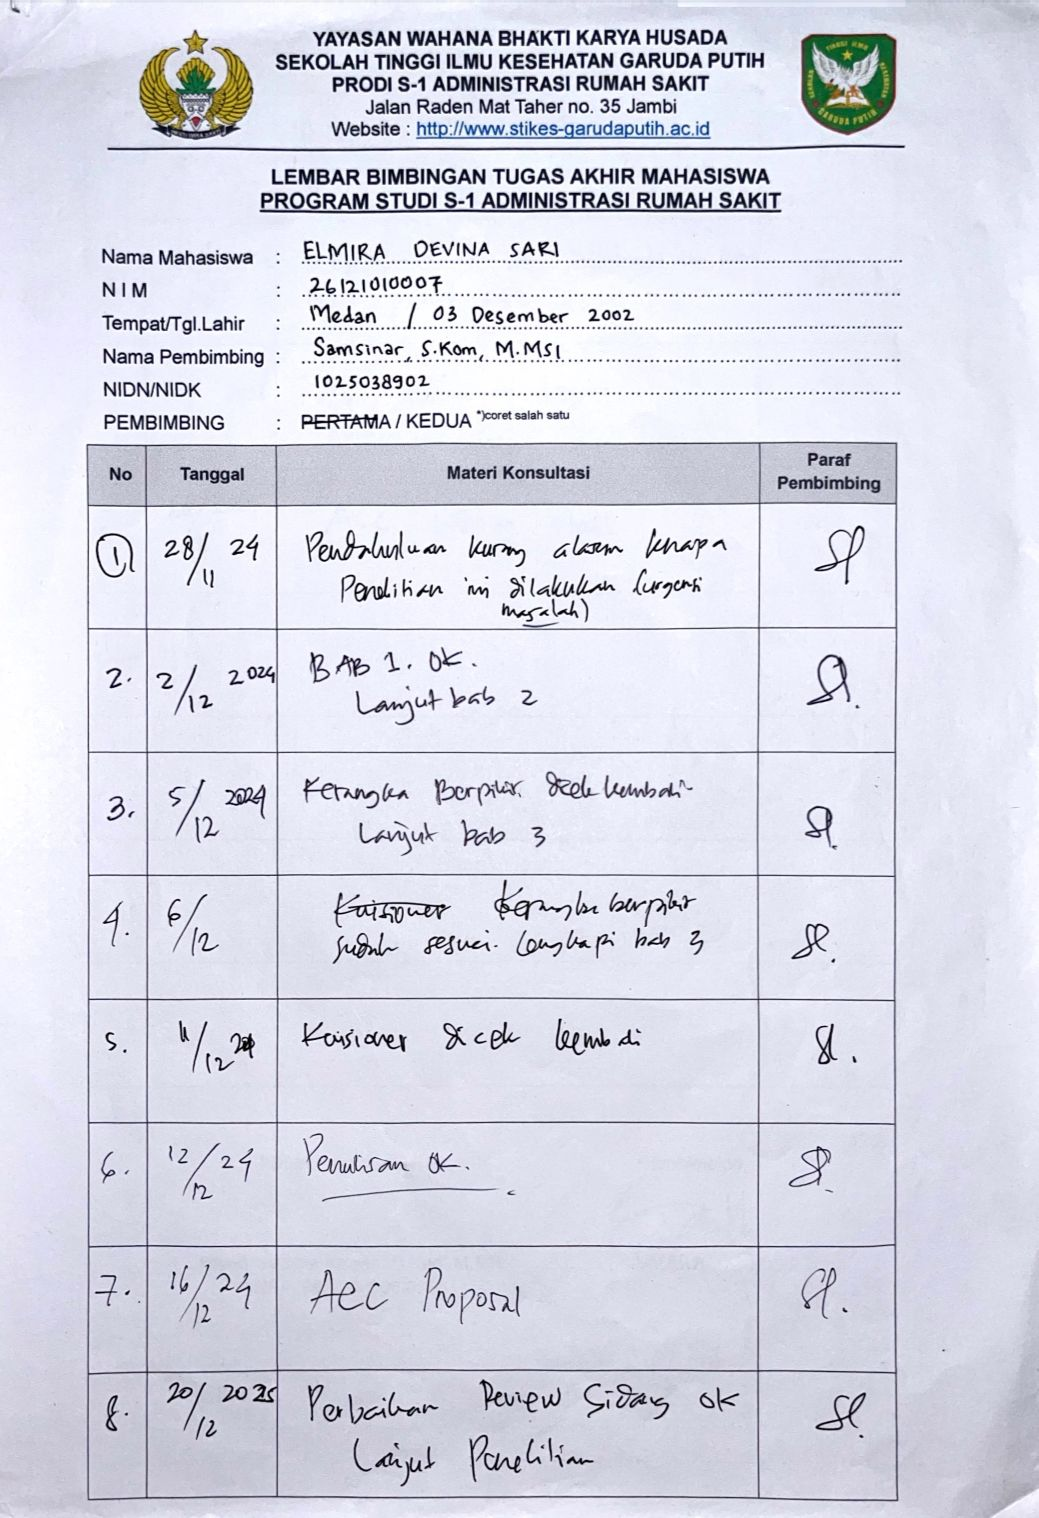 YAYASAN WAHANA BHAKTI KARYA HUSADA
SEKOLAH TINGGI ILMU KESEHATAN GARUDA PUTIH
PRODI S-1 ADMINISTRASI RUMAH SAKIT
Jalan Raden Mat Taher no. 35 Jambi
Website : http://www.stikes-garudaputih.ac.id
GARUDA PUTIH
LEMBAR BIMBINGAN TUGAS AKHIR MAHASISWA
PROGRAM STUDI S-1 ADMINISTRASI RUMAH SAKIT
Nama Mahasiswa : ELMIRA DEVINA SARI
N I M : 26121010007
Tempat/Tgl.Lahir : Medan / 03 Desember 2002
Nama Pembimbing : Samsinar, S.Kom, M.MSI
NIDN/NIDK : 1025038902
PEMBIMBING : PERTAMA / KEDUA *)coret salah satu
No Tanggal Materi Konsultasi Paraf Pembimbing
1 28/11 24 Pendahuluan kurang alasan kenapa
Penelitian ini dilakukan (urgensi
masalah)
2. 2/12 2024 BAB 1. OK.
Lanjut bab 2
3. 5/12 2024 Kerangka Berpikir dicek kembali
Lanjut bab 3
4. 6/12 Kuisioner Kerangka berpikir
sudah sesuai. Lengkapi bab 3
5. 11/12 Kuisioner dicek kembali
6. 12/12 24 Penulisan OK.
7. 16/12 24 Acc Proposal
8. 20/12 2025 Perbaikan Review Sidang OK
Lanjut Penelitian